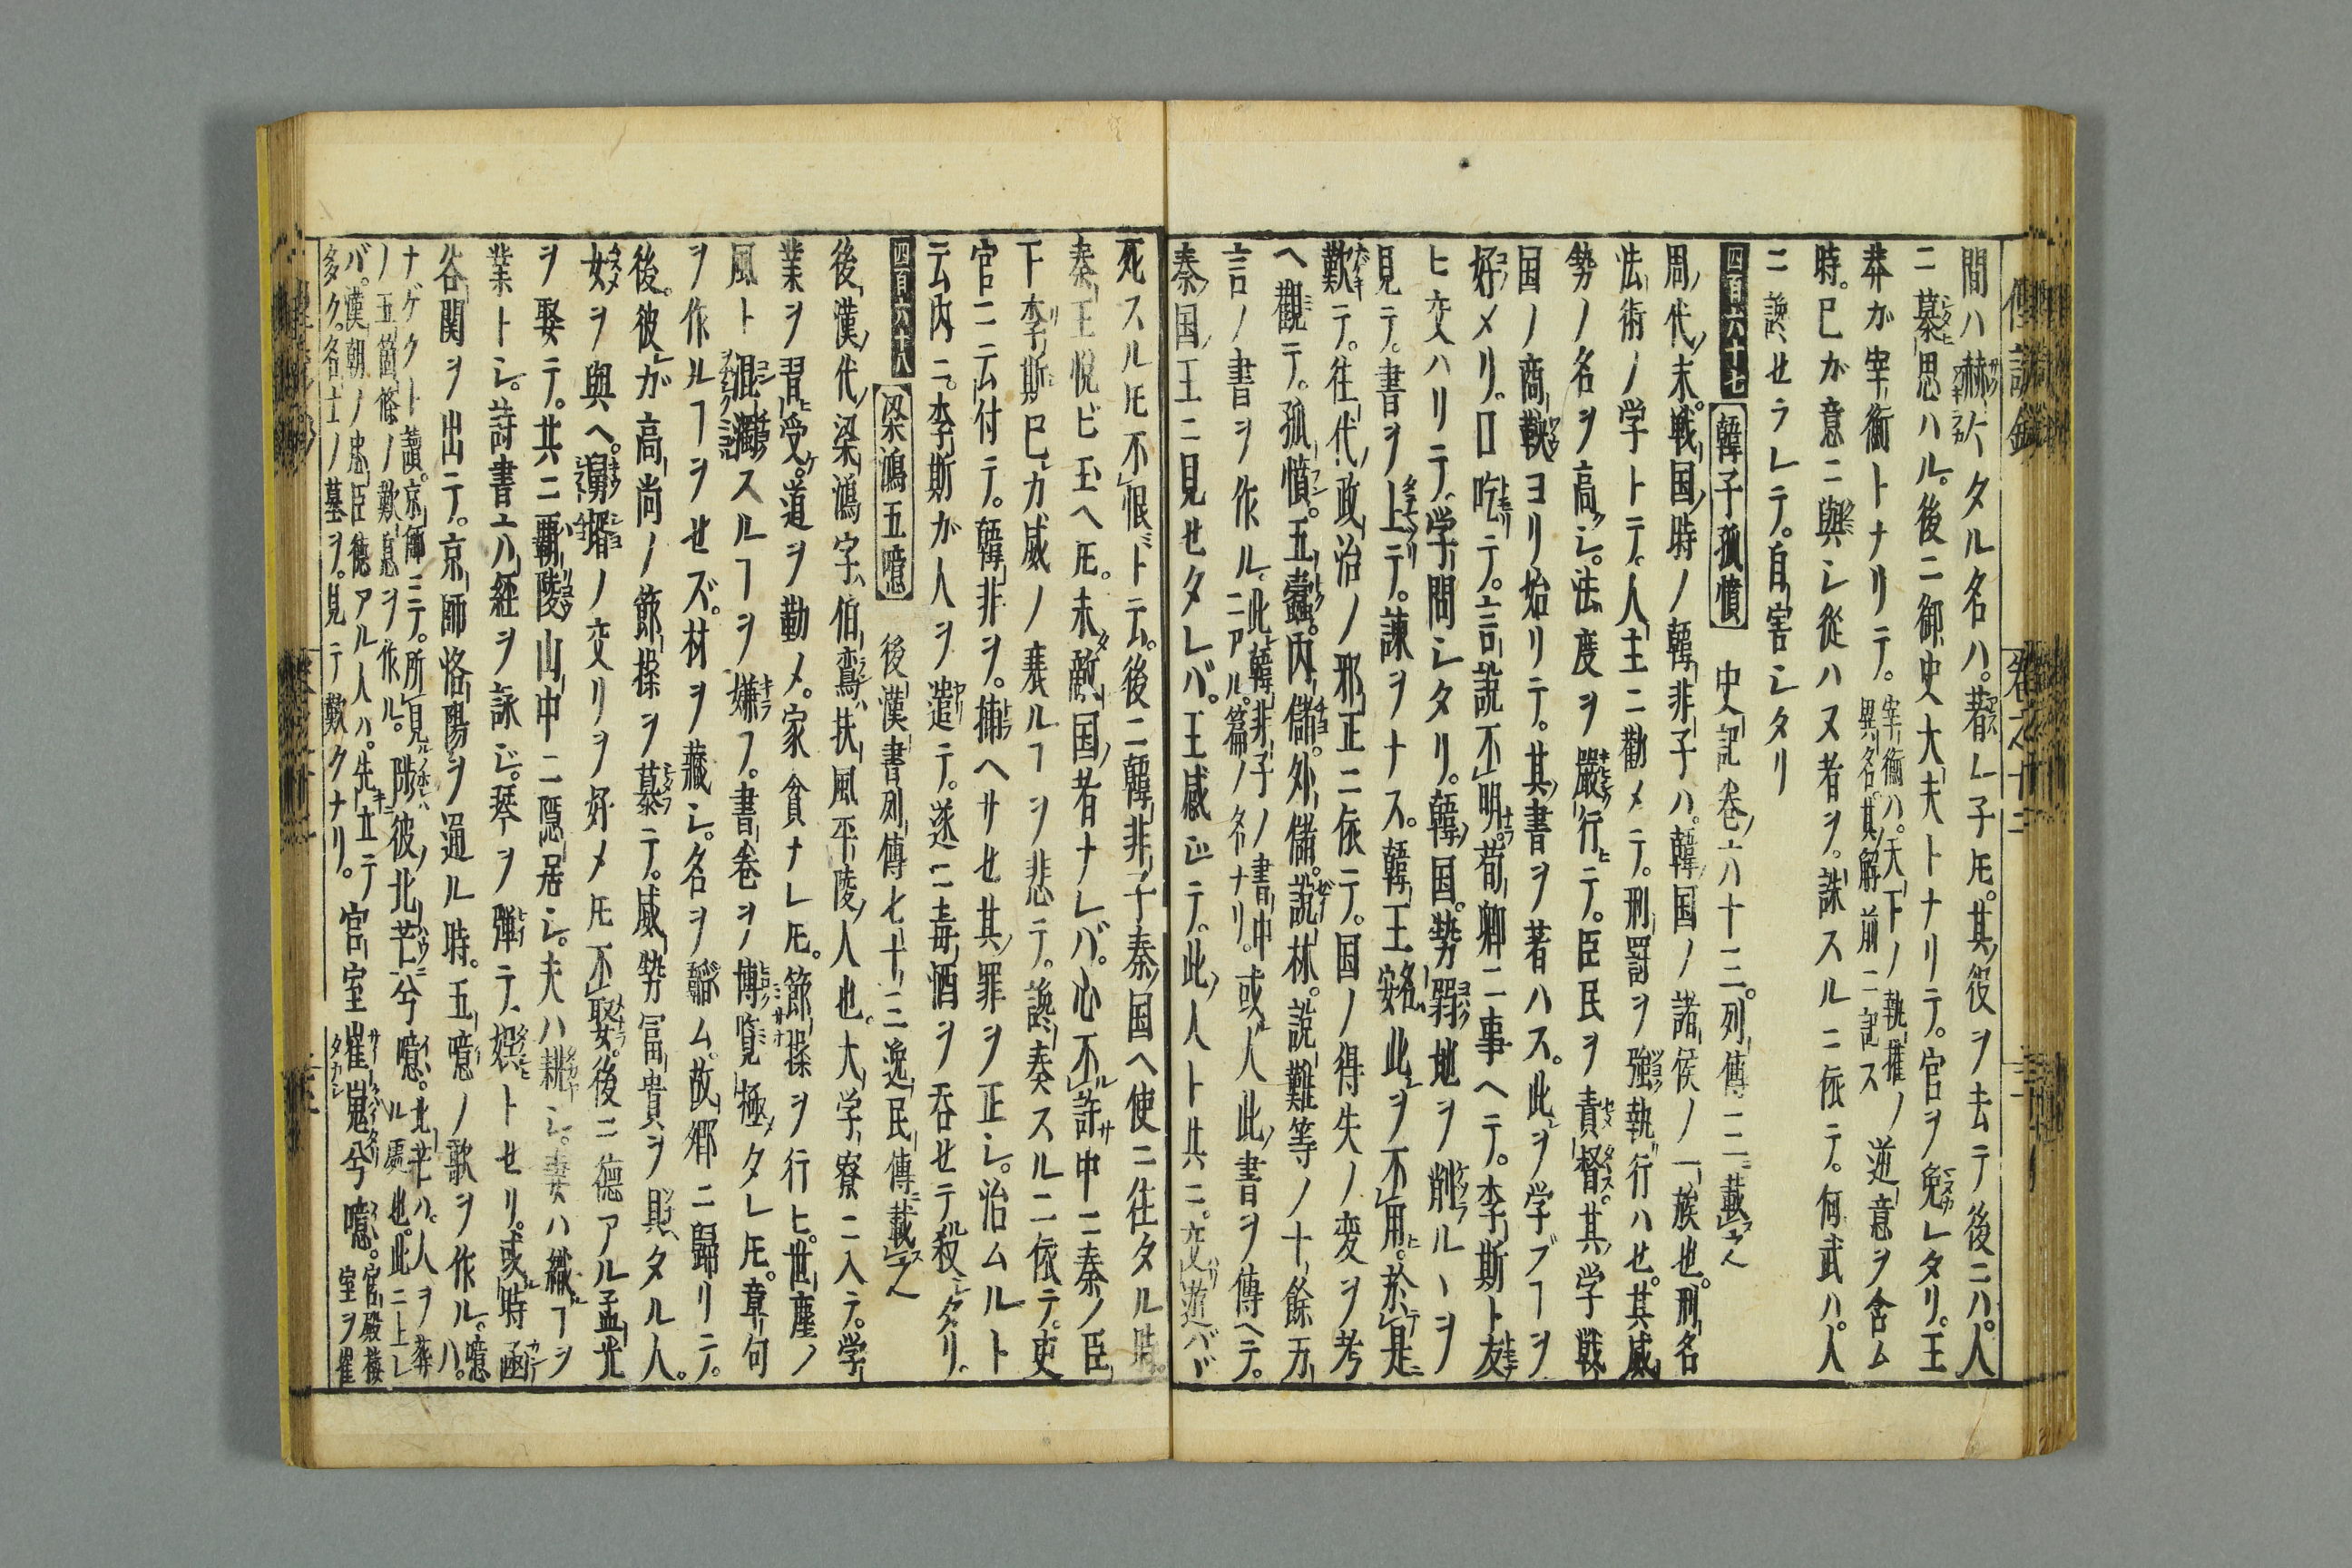 間ハ赫〻タル名ハ。著レ子𪜈。其役ヲ去テ後ニハ。人
ニ慕思ハル。後ニ御史大夫トナリテ。官ヲ免レタリ。王
莽ガ宰衡トナリテ。宰衡ハ。天下ノ執権ノ
異名。其解前ニ記ス
逆意ヲ含ム
時。已ガ意ニ與シ従ハヌ者ヲ。誅スルニ依テ。何武ハ。人
ニ譛せラレテ。自害シタリ
四百六十七 韓子孤憤 史記巻六十三。列傳ニ載之
周代末。戦国時ノ韓非子ハ。韓国ノ諸侯ノ一族也。刑名
法術ノ学トテ。人主ニ勸メテ。刑罰ヲ強執行ハせ。其威
勢ノ名ヲ高シ。法度ヲ嚴行テ。臣民ヲ責督。其学戦
国ノ商鞅ヨリ始リテ。其書ヲ著ハス。此ヲ学ブヿヲ
好メリ。口吃テ。言説不明。荀卿ニ事ヘテ。李斯ト友
ヒ交ハリテ。学問シタリ。韓国。勢弱地ヲ削ルヽヲ
見テ。書ヲ上テ。諫ヲナス。韓王安名此ヲ不用。於是
歎テ。往代政治ノ邪正ニ依テ。国ノ得失ノ変ヲ考
ヘ觀テ。孤憤。五蠹。内儲。外儲。説林。説難等ノ十餘万
言ノ書ヲ作ル。此韓非子ノ書中
ニアル。篇ノ名ナリ。
或人此書ヲ傳ヘテ。
秦国王ニ見せタレバ。王感ジテ。此人ト共ニ。交遊バヾ
死スル𪜈不恨トテ云。後ニ韓非子秦国ヘ使ニ往タル時。
秦王悦ビ玉ヘ𪜈。未敵国者ナレバ。心不許中ニ秦ノ臣
下李斯已カ威ノ衰ルヿヲ悲テ。讒奏スルニ依テ。吏
官ニ云付テ。韓非ヲ。捕ヘサせ其罪ヲ正シ。治ムルト
云内ニ。李斯ガ人ヲ遣テ。遂ニ毒酒ヲ呑せテ殺シタリ。
四百六十八 梁鴻五噫 後漢書列傳七十三逸民傳載之
後漢代梁鴻字伯鸞扶風平陵人也。大学寮ニ入テ。学
業ヲ習受。道ヲ勤メ。家貧ナレ𪜈。節操ヲ行ヒ。世塵ノ
風ト混濁スルヿヲ嫌フ。書巻ヲ博覧極タレ𪜈。章句
ヲ作ルヿヲせズ。材ヲ藏シ。名ヲ韜ム。故郷ニ歸リテ。
後。彼ガ高尚ノ節操ヲ慕テ。威勢冨貴ヲ具タル人。
女ヲ與ヘ。舅壻ノ交リヲ好メ𪜈不娶。後ニ徳アル孟光
ヲ娶テ。共ニ覇陵山中ニ隠居シ。夫ハ耕シ。妻ハ織ヿヲ
業トシ。詩書ニハ經ヲ詠ジ。琴ヲ彈テ。娯トせリ。或時函
谷関ヲ出テ。京師洛陽ヲ過ル時。五噫ノ歌ヲ作ル。噫ハ。
ナゲクト讀。京師ニテ。所見
ノ五箇條ノ歎息ヲ作ル。
陟彼北芒兮噫。北芒ハ。人ヲ葬
ル處也。此ニ上レ
バ。漢朝ノ忠臣徳アル人ハ。先立テ
多ク。名士ノ墓ヲ。見テ歎クナリ。
官室崔嵬兮噫。官殿楼
室ヲ崔